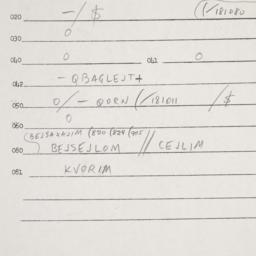 020 — / $ (✓181080
030 0
040 0 041 0
042 — QBAGLEJT+
050 0/ — QORN (✓181011 /$
060 0
BEJSAKAJIM (820 (824 (915
080 BEJSEJLOM // CEJLIM
081 KVORIM